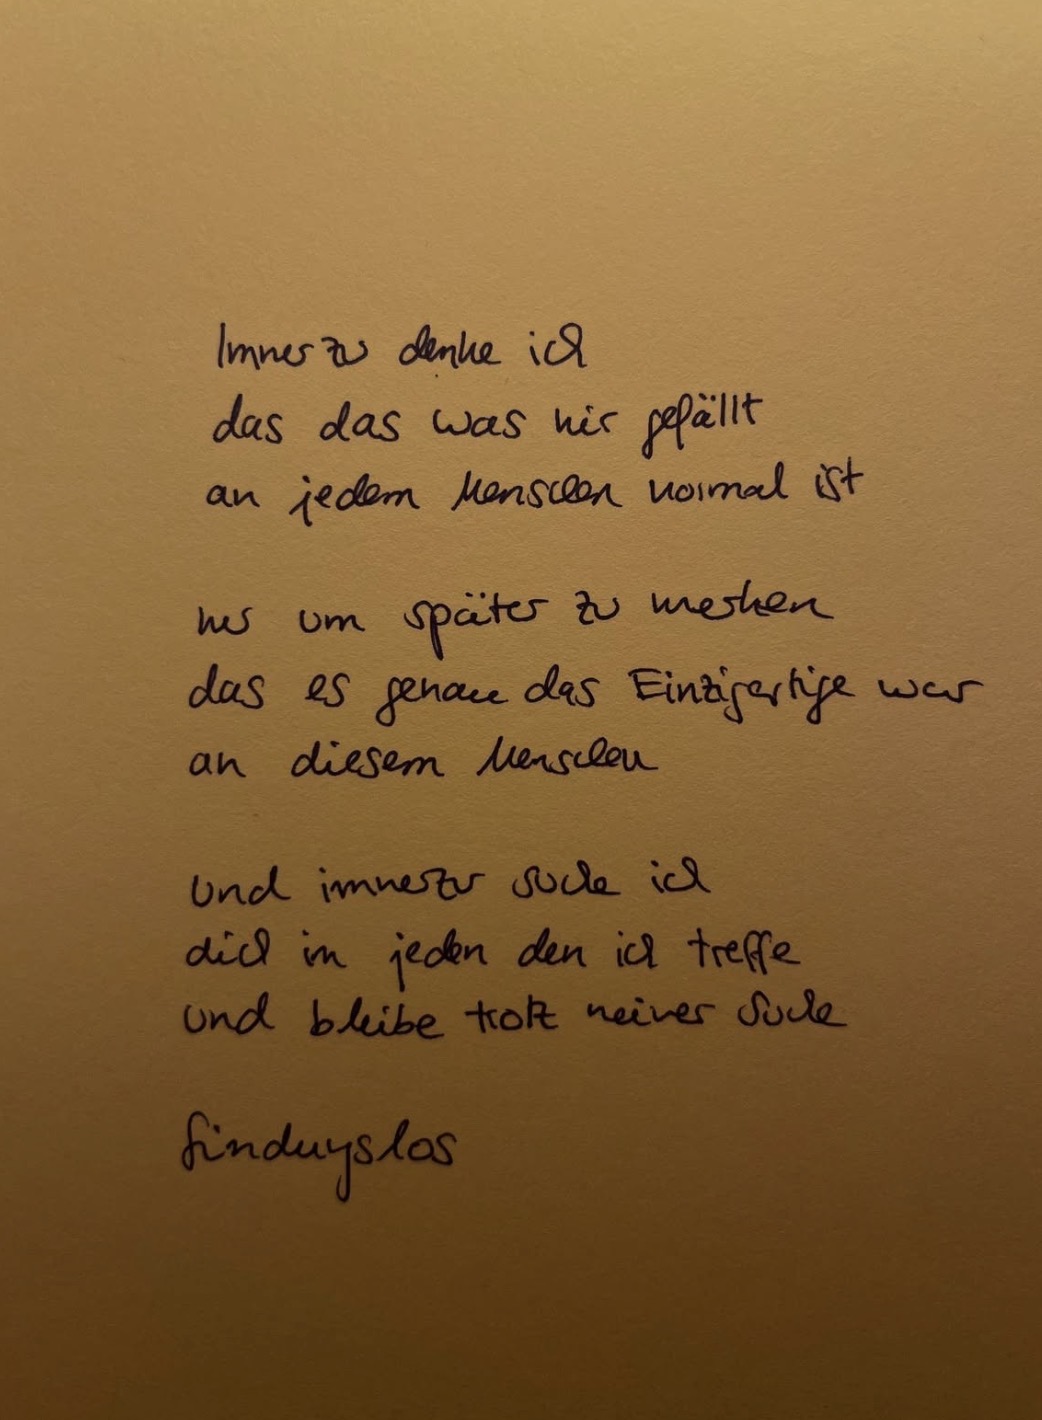 Immerzu denke ich
das das was mir gefällt
an jedem Menschen normal ist
nur um später zu merken
das es genau das Einzigartige war
an diesem Menschen
und immerzu suche ich
dich in jeden den ich treffe
und bleibe trotz meiner Suche
findungslos